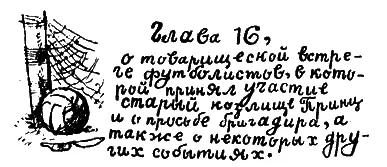 Глава 16,
о товарищеской встре-
че футболистов, в кото-
рой принял участие
старый козлище Принц
и о просьбе бригадира, а
также о некоторых дру-
гих событиях.